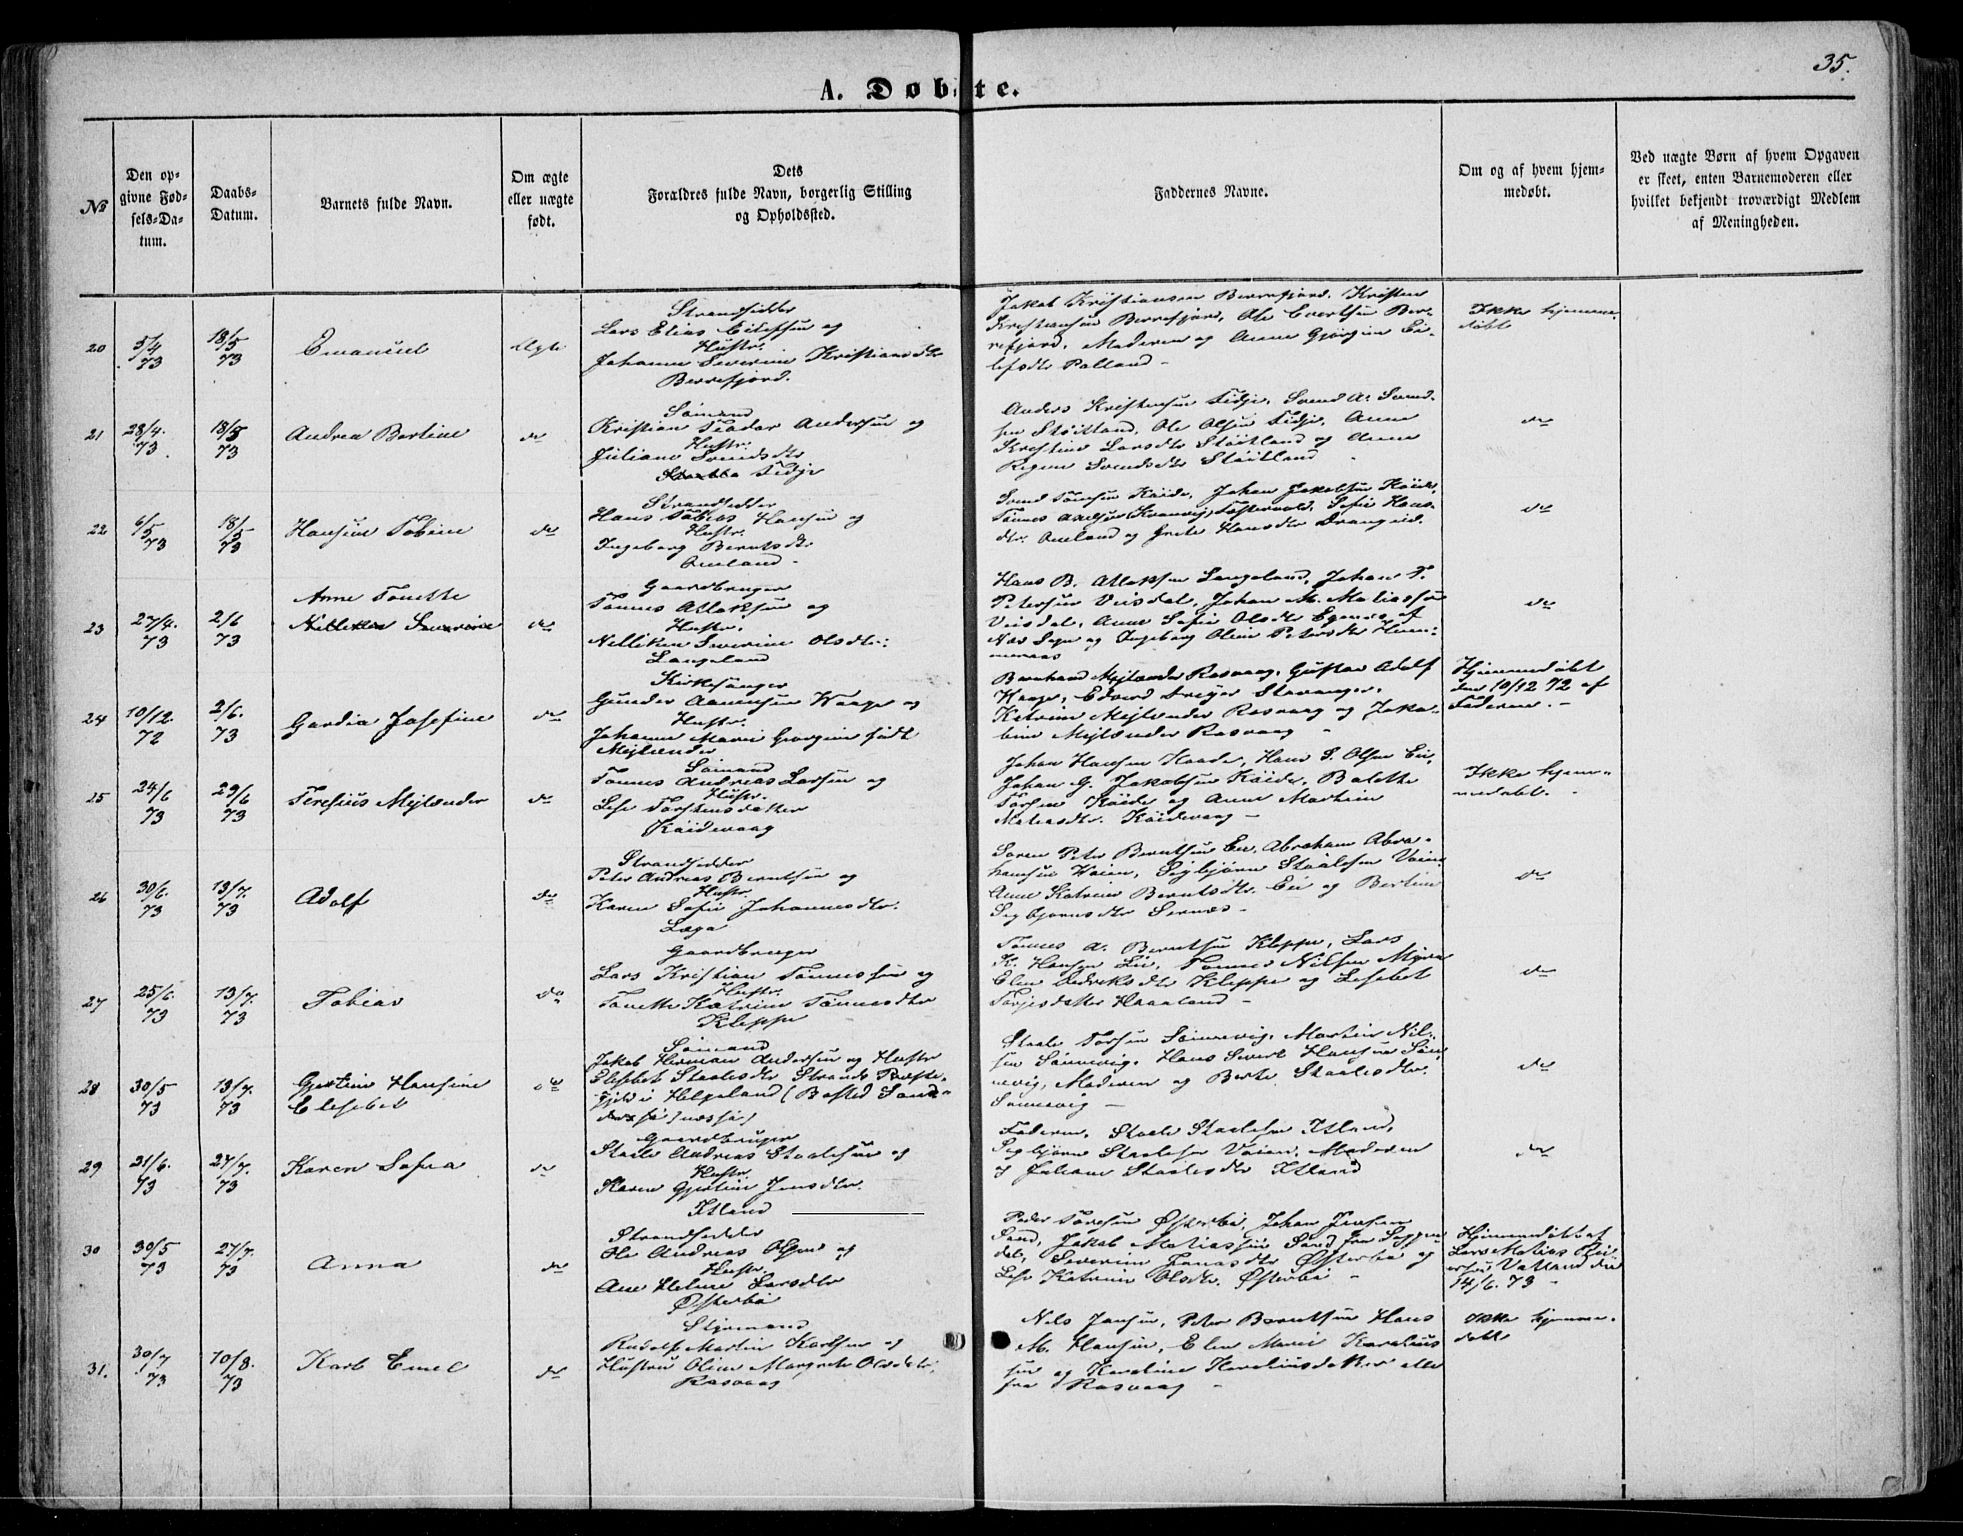 35.
A. Døbte.
№
Den opgivne Fødsels-Datum.
Daabs-Datum.
Barnets fulde Navn.
Om ægte eller uægte født.
Dets Forældres fulde Navn, borgerlig Stilling og Opholdssted.
Faddernes Navne.
Om og af hvem hjemmedøbt.
Ved uægte Børn af hvem Opgaven er skeet, enten Barnemoderen eller hvilket bekjendt troværdigt Medlem af Meningheden.
20 5/4 73 18/5 73 Emanuel Ægte
Strandsidder
Lars Elias Eilefsen og
Hustr.
Johanne Severine Kristiansdtr
Berrefjord.
Jakob Kristiansen Berrefjord, Kristen
Kristiansen Berrefjord, Ole Evertsen Ber-
refjord, Moderen og Anne Gjørgine Ei-
lefsdtr Polland -
Ikke hjemme-
døbt
21 28/4. 73 18/5 73 Andrea Bertine do
Sømand
Kristian Teodor Andersen og
Hustr.
Juliane Svendsdtr
Tidje
Anders Kristensen Tidje, Svend A. Svend-
sen Støitland, Ole Olsen Tidje, Anne
Kristine Larsdtr Støitland og Anne
Regine Svendsdtr Støitland
do
22 6/5 73 18/5 73 Hansine Tobine do
Strandsidder
Hans Tobias Hansen og
Hustr.
Ingeborg Berntsdtr
Aueland -
Svend Tønnesen Køide, Johan Jakobsen Køide,
Tønnes Axelsen (Kranvig) Tostervold, Sofie Hans-
dtr. Aueland og Grete Hansdtr Drangeid.
do
23 27/4. 73 2/6 73
Anne Tonette
Nilliken Severine do
Gaardbruger
Tønnes Atlaksen og
Hustr.
Nilliken Severine Olsdtr:
Langeland
Hans B. Atlaksen Langeland, Johan T.
Petersen Veisdal, Johan M. Matiassen
Veisdal, Anne Sofie Olsdtr Egenes af
Næs Sogn og Ingeborg Oline Petersdtr Hum-
meraas
do
24 10/12. 72 2/6. 73 Gardia Josefine do
Kirkesanger
Gunder Aanensen Haage og
Hustr.
Johanne Marie Georgine født
Mejlænder
Bernhard Mejlænder Rasvaag, Gustav Adolf
Haage, Edvard Dreyer Stavanger,
Katrine Mejlænder Rasvaag og Jako-
bine Mejlænder Rasvaag -
Hjemmedøbt
den 10/12 72 af
Faderen. -
25 24/6 73 29/6 73 Teresius Mejlænder do
Sømand
Tønnes Andreas Larsen og
Hustr.
Lise Torstensdatter
Køidevaag
Johan Hansen Haade, Hans S. Olsen Eie,
Johan G. Jakobsen Køide, Bolette
Torsen Køide og Anne Martine
Matiasdtr. Køidevaag -
Ikke hjem-
medøbt.
26 30/6. 73 13/7. 73 Adolf do
Strandsidder
Peter Andreas Berntsen og
Hustr
Karen Sofie Johannesdtr.
Løga
Søren Peter Berntsen Eie, Abraham Abra-
hamsen Høien, Sigbjørn Staalesen Vaien
Anne Katrine Berntsdtr. Eie og Bertine
Sigbjørnsdtr Sernæs -
do
27 25/6. 73 13/7. 73 Tobias do
Gaardbruger
Lars Kristian Tønnessen og
Hustr.
Tonette Katrine Tønnesdtr
Kleppe
Tønnes A. Berntsen Kleppe, Lars
K. Hansen Lie, Tønnes Nilsen Myra
Elen Didriksdtr Kleppe og Lisebet
Torjesdatter Haaland -
do
28 30/5 73 13/7. 73 Gjertine Hansine
Elisebet do
Sømand
Jakob Herman Andersen og Hustr
Elisebet Staalesdtr Strands Præste-
gjeld i Helgeland (Bosted Sand-
Staale Torsen Sønnevig, Martin Nil-
sen Sønnevig, Hans Sivert Hansen Søn-
nevig, Moderen og Berte Staalesdtr.
Sønnevig -
do
29 21/6. 73 27/7. 73 Karen Sofia do
Gaardbruger
Staale Andreas Staalesen og
Hustr
Karen Gjertine Jensdtr.
Itland
Faderen, Staale Staalesen Itland,
Sigbjørn Staalesen Vaien, Moderen
og Juliane Staalesdtr Itland
do
30 30/5 73 27/7. 73 Anna do
Strandsidder
Ole Andreas Olsen og
Hustr.
Ane Helene Larsdtr
Østerbø
Peder Tørresen Østerbø, Johan Jensen
Sand, Jakob Matiassen Sand fra Soggen-
dal, Severine Jonasdtr Østerbø og
Lise Katrine Olsdtr. Østerbø -
Hjemmedøbt af
Lars Matias Rei-
ersen Vatland den
14/6. 73 -
31. 30/7 73 10/8. 73 Karl Emel do
Styrmand
Rudolf Martin Karlsen og
Hustru Oline Margrete Olsdatr.
Rasvaag
Nils Jensen, Peter Berntsen Hans
M. Hansen, Elen Marie Karelius-
sen og Karoline Kareliusdatter alle
fra Rasvaag -
Ikke hjemme-
døbt